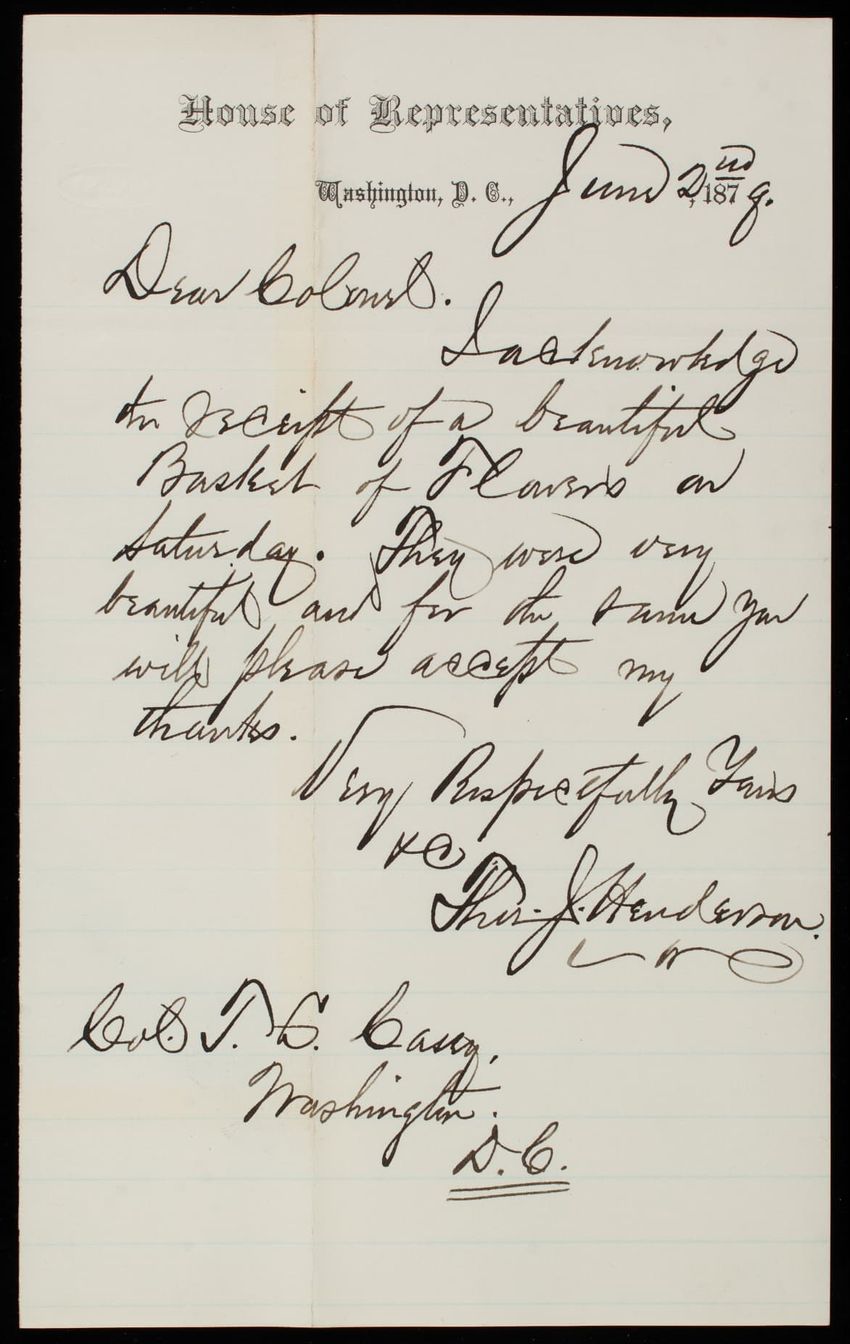 House of Representatives,
Washington, D. C., June 2nd, 1879.
Dear Colonel.
I acknowledge
the receipt of a beautiful
Basket of Flowers on
Saturday. They were very
beautiful and for the same you
will please accept my
thanks.
Very Respectfully Yours
&c
Thos. J. Henderson.
Col. T. L. Casey,
Washington.
D.C.